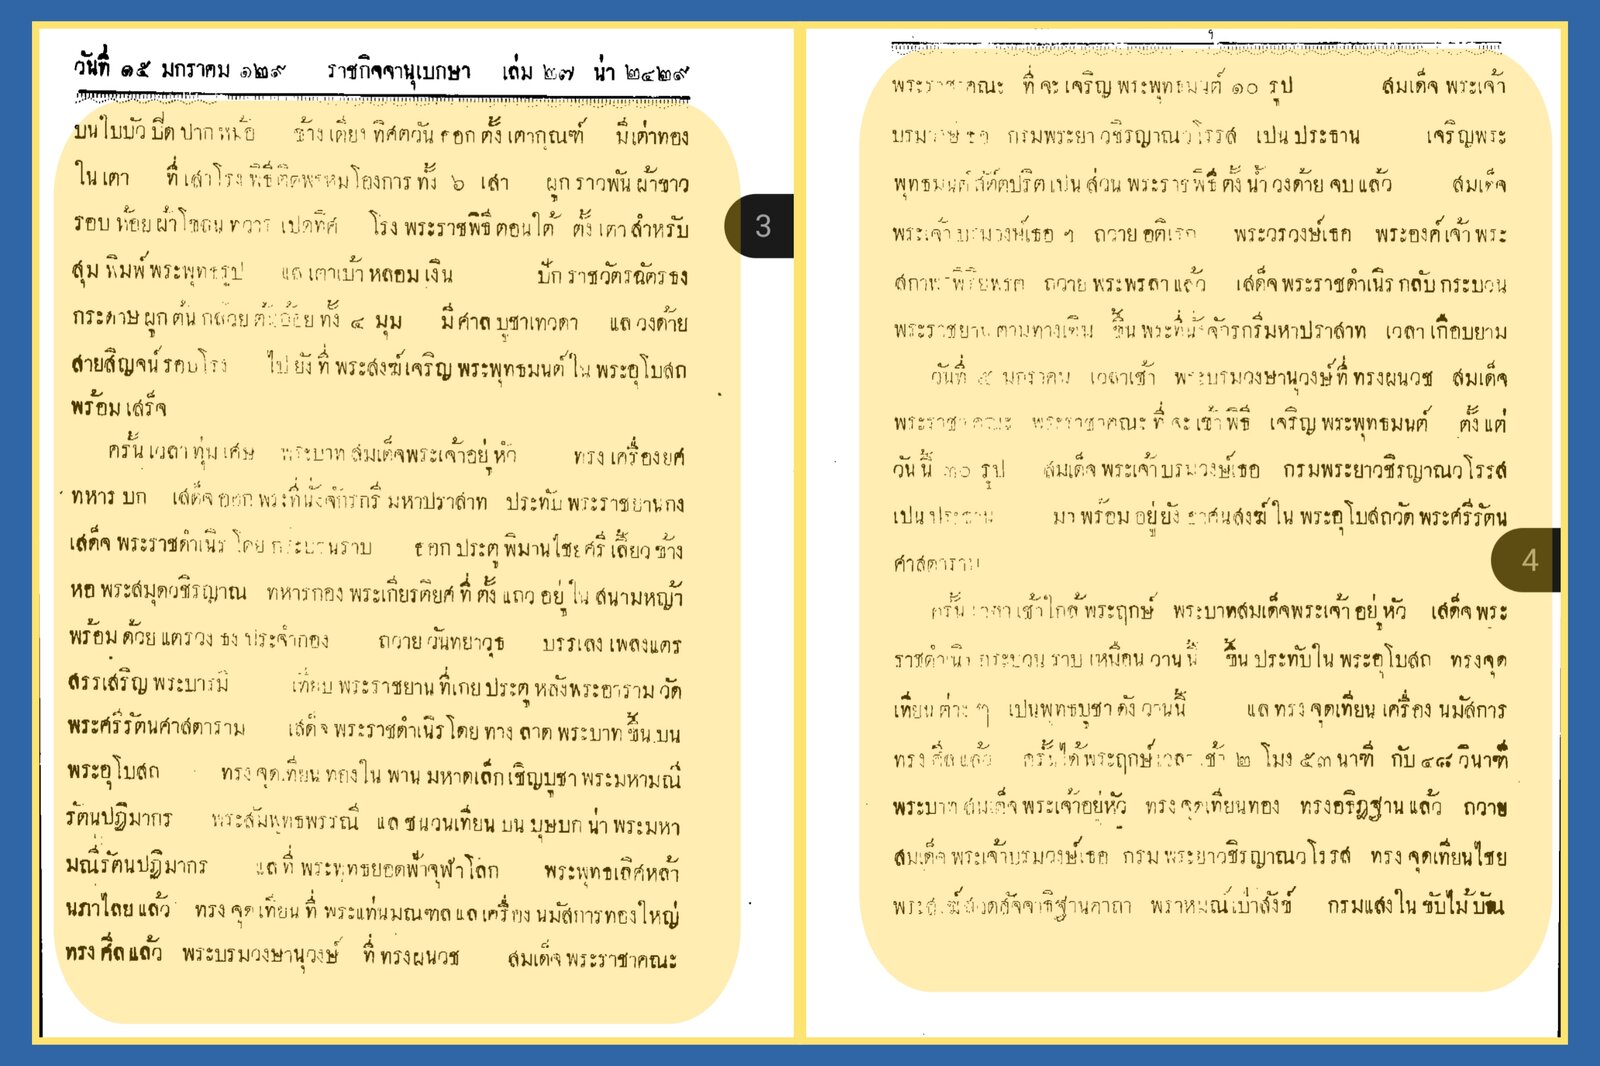 วันที่ ๑๕ มกราคม ๑๒๙ ราชกิจจานุเบกษา เล่ม ๒๗ น่า ๒๔๒๙
บนใบบัวปิดปากหม้อ ข้างเตียงทิศตวันออกตั้งเตากูณฑ์ มีเต่าทอง
ในเตา ที่เสาโรงพิธีติดพรหมโองการทั้ง ๖ เสา ผูกราวพันผ้าขาว
รอบห้อยผ้าโขลนทวารเปดทิศ โรงพระราชพิธีตอนใต้ ตั้งเตาสำหรับ
สุมพิมพ์พระพุทธรูป แลเตาเบ้าหลอมเงิน ปักราชวัตรฉัตรธง
กระดาษผูกต้นกล้วยต้นอ้อยทั้ง ๔ มุม มีศาลบูชาเทวดา แลวงด้าย
สายสิญจน์รอบโรง ไปยังที่พระสงฆ์เจริญพระพุทธมนต์ในพระอุโบสถ
พร้อมเสร็จ
ครั้นเวลาทุ่มเศษ พระบาทสมเด็จพระเจ้าอยู่หัว ทรงเครื่องยศ
ทหารบก เสด็จออกพระที่นั่งจักรกรีมหาปราสาท ประทับพระราชยานกง
เสด็จพระราชดำเนิรโดยกระบวนราบ ออกประตูพิมานไชยศรีเลี้ยวข้าง
หอพระสมุดวชิรญาณ ทหารกองพระเกียรติยศที่ตั้งแถวอยู่ในสนามหญ้า
พร้อมด้วยแตรวงธงประจำกอง ถวายวันทยาวุธ บรรเลงเพลงแตร
สรรเสริญพระบารมี เทียบพระราชยานที่เกยประตูหลังพระอารามวัด
พระศรีรัตนศาสดาราม เสด็จพระราชดำเนิรโดยทางลาดพระบาทขึ้นบน
พระอุโบสถ ทรงจุดเทียนทองในพานมหาดเล็กเชิญบูชาพระมหามณี
รัตนปฏิมากร พระสัมพุทธพรรณี แลชนวนเทียนบนบุษบกน่าพระมหา
มณีรัตนปฏิมากร แลที่พระพุทธยอดฟ้าจุฬาโลก พระพุทธเลิศหล้า
นภาไลยแล้ว ทรงจุดเทียนที่พระแท่นมณฑลแลเครื่องนมัสการทองใหญ่
ทรงศีลแล้ว พระบรมวงษานุวงษ์ ที่ทรงผนวช สมเด็จพระราชาคณะ
3
พระราชาคณะ ที่จะเจริญพระพุทธมนต์ ๑๐ รูป สมเด็จพระเจ้า
บรมวงษ์เธอ กรมพระยาวชิรญาณวโรรส เปนประธาน เจริญพระ
พุทธมนต์สัตตปริตเปนส่วนพระราชพิธีตั้งน้ำวงด้ายจบแล้ว สมเด็จ
พระเจ้าบรมวงษ์เธอ ฯ ถวายอติเรก พระวรวงษ์เธอ พระองค์เจ้าพระ
สถาพรพิริยพรต ถวายพระพรลาแล้ว เสด็จพระราชดำเนิรกลับกระบวน
พระราชยานตามทางเดิม ขึ้นพระที่นั่งจักรกรีมหาปราสาท เวลาเกือบยาม
วันที่ ๕ มกราคม เวลาเช้า พระบรมวงษานุวงษ์ที่ทรงผนวช สมเด็จ
พระราชาคณะ พระราชาคณะที่จะเข้าพิธี เจริญพระพุทธมนต์ ตั้งแต่
วันนี้ ๓๐ รูป สมเด็จพระเจ้าบรมวงษ์เธอ กรมพระยาวชิรญาณวโรรส
เปนประธาน มาพร้อมอยู่ยังอาศนสงฆ์ในพระอุโบสถวัดพระศรีรัตน
ศาสดาราม
ครั้นเวลาเช้าใกล้พระฤกษ์ พระบาทสมเด็จพระเจ้าอยู่หัว เสด็จพระ
ราชดำเนิรกระบวนราบเหมือนวานนี้ ขึ้นประทับในพระอุโบสถ ทรงจุด
เทียนต่าง ๆ เปนพุทธบูชาดังวานนี้ แลทรงจุดเทียนเครื่องนมัสการ
ทรงศีลแล้ว ครั้นได้พระฤกษ์เวลาเช้า ๒ โมง ๕๓ นาที กับ ๔๘ วินาที
พระบาทสมเด็จพระเจ้าอยู่หัว ทรงจุดเทียนทอง ทรงอธิฏฐานแล้ว ถวาย
สมเด็จพระเจ้าบรมวงษ์เธอ กรมพระยาวชิรญาณวโรรส ทรงจุดเทียนไชย
พระสงฆ์สวดสัจจาธิฐานคาถา พราหมณ์เป่าสังข์ กรมแสงในขับไม้บัณ
4